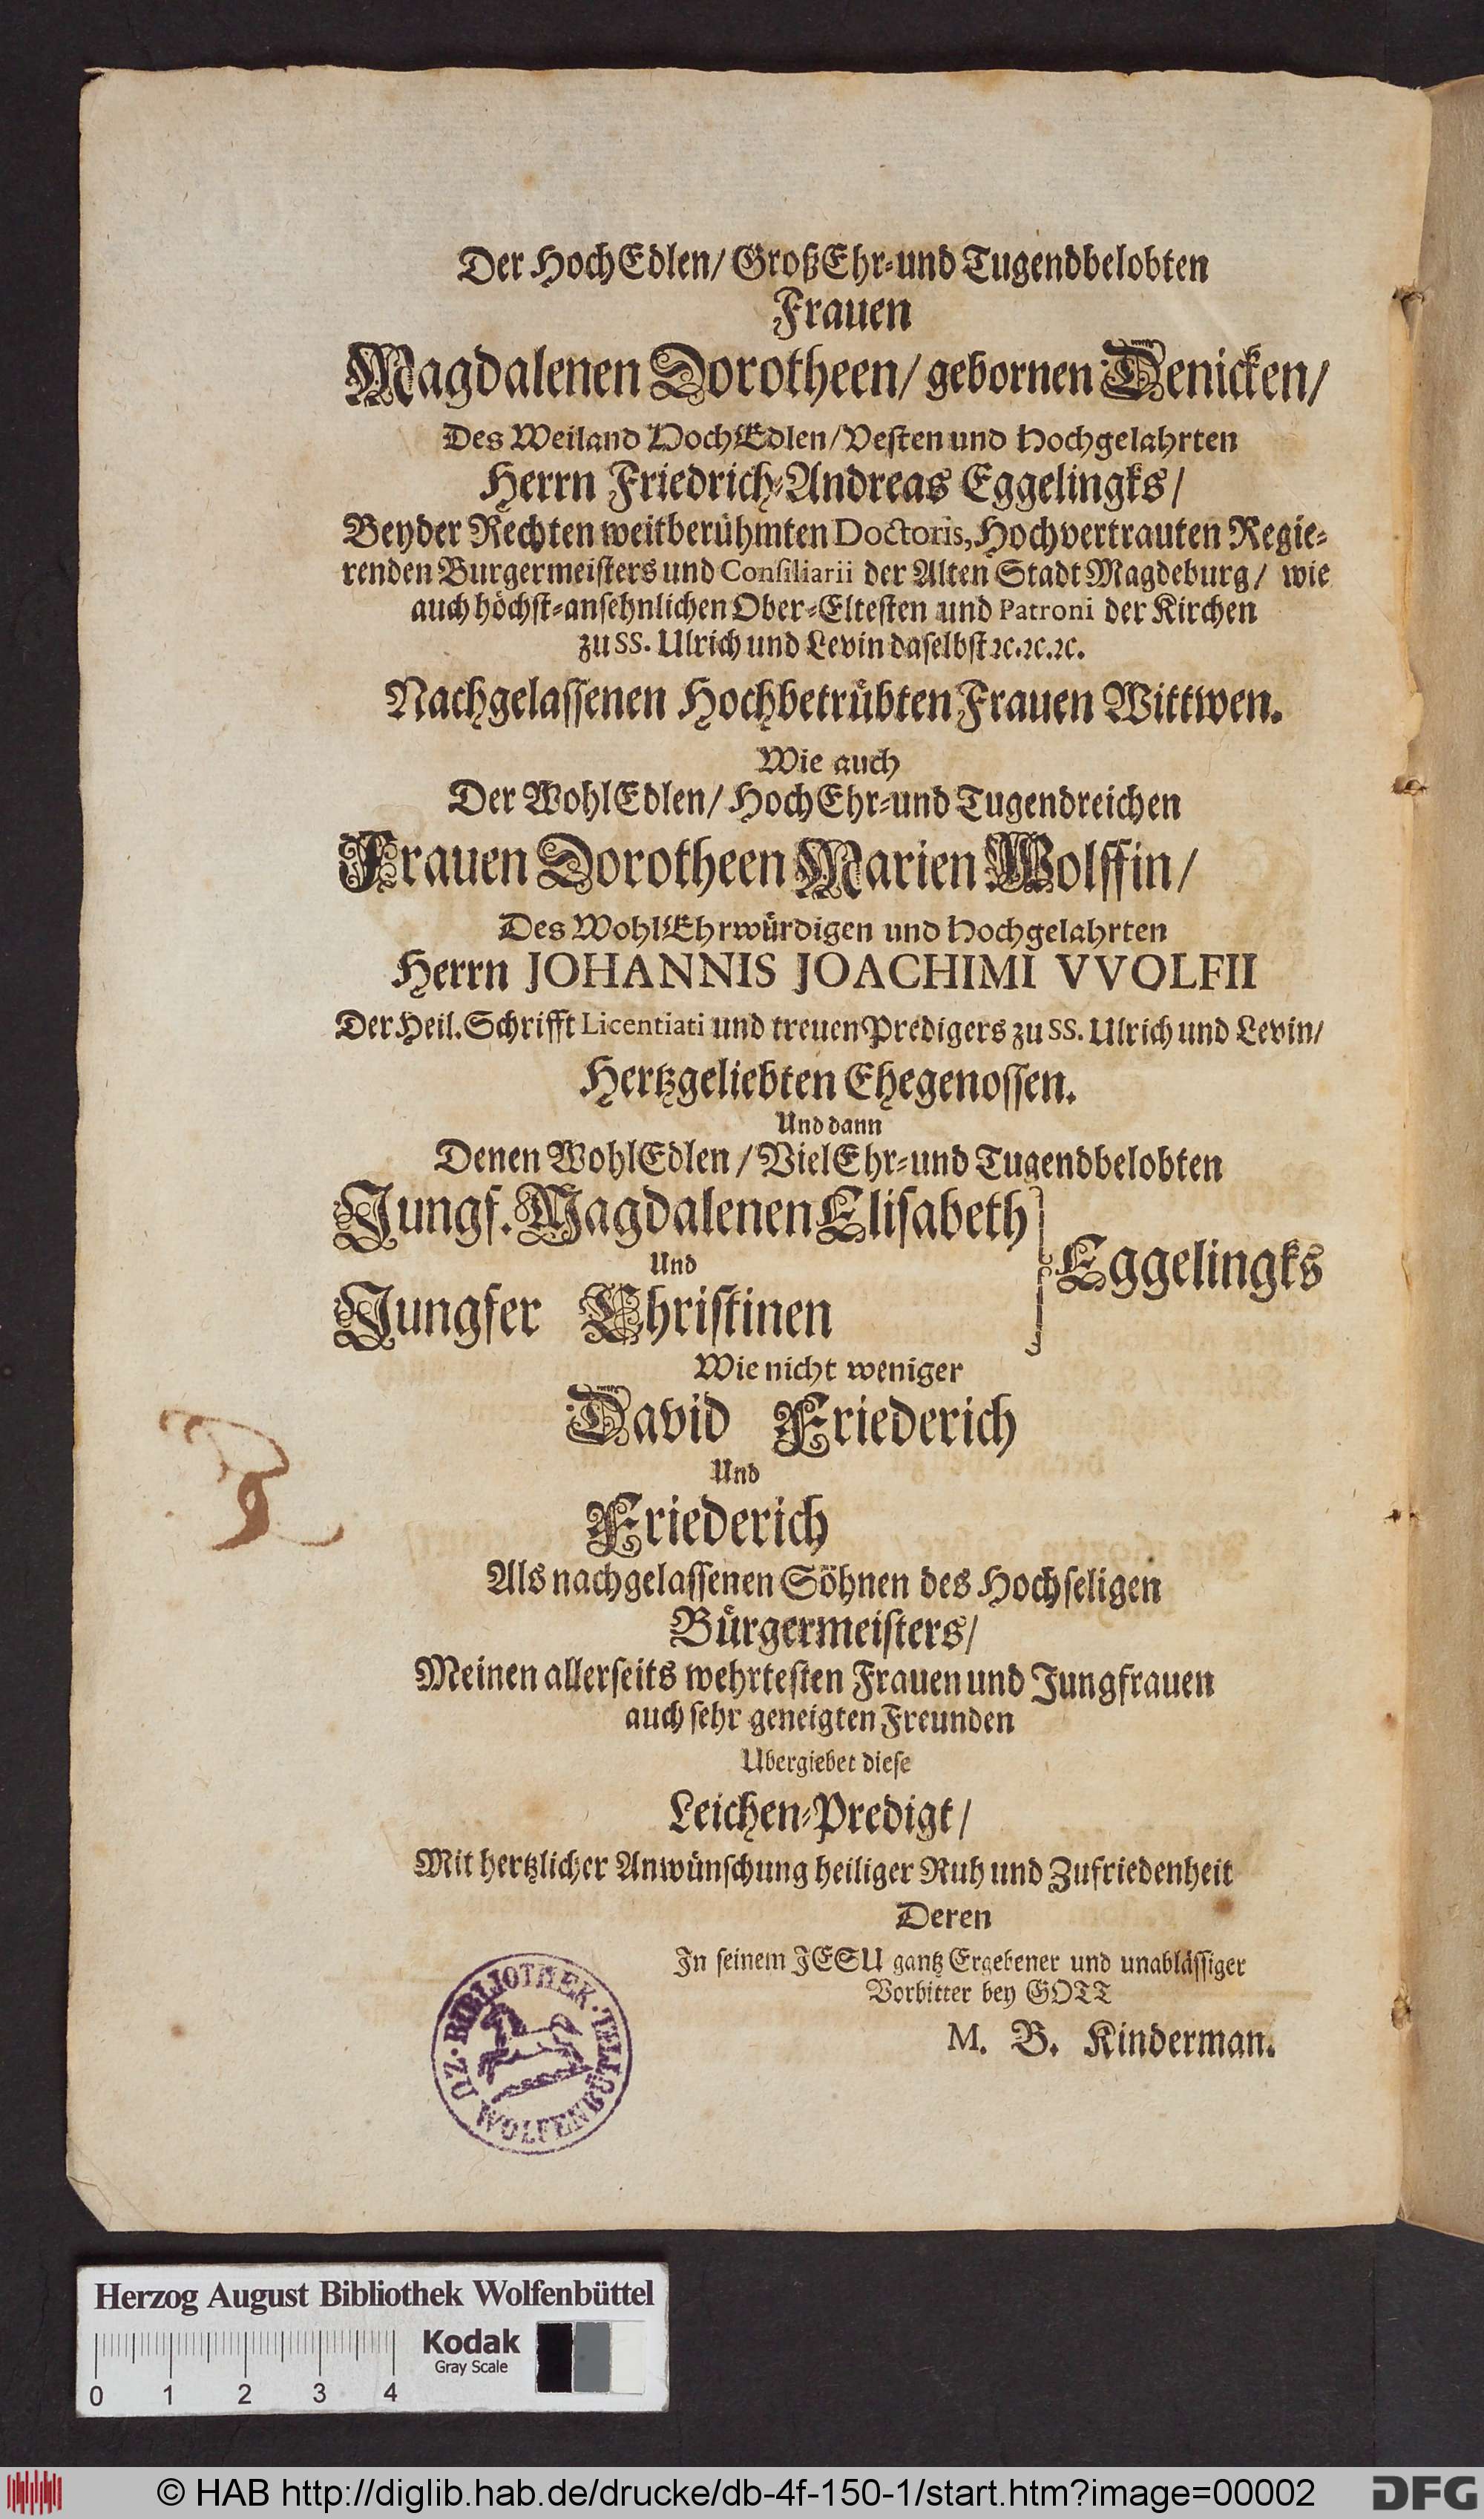 Der HochEdlen/ GroßEhr-und Tugendbelobten
Frauen
Magdalenen Dorotheen/ gebornen Denicken/
Des Weiland HochEdlen/ Vesten und Hochgelahrten
Herrn Friedrich-Andreas Eggelingks/
Beyder Rechten weitberühmten Doctoris, Hochvertrauten Regie-
renden Burgermeisters und Consiliarii der Alten Stadt Magdeburg/ wie
auch höchst-ansehnlichen Ober-Eltesten und Patroni der Kirchen
zu SS. Ulrich und Levin daselbst ꝛc.ꝛc.ꝛc.
Nachgelassenen Hochbetrübten Frauen Wittwen.
Wie auch
Der WohlEdlen/ HochEhr-und Tugendreichen
Frauen Dorotheen Marien Wolffin/
Des WohlEhrwürdigen und Hochgelahrten
Herrn JOHANNIS JOACHIMI VVOLFII
Der Heil. Schrifft Licentiati und treuen Predigers zu SS. Ulrich und Levin/
Hertzgeliebten Ehegenossen.
Und dann
Denen WohlEdlen/ VielEhr-und Tugendbelobten
Jungf. Magdalenen Elisabeth
Und
Jungfer Christinen
Eggelingks
Wie nicht weniger
David Friederich
Und
Friederich
Als nachgelassenen Söhnen des Hochseligen
Bürgermeisters/
Meinen allerseits wehrtesten Frauen und Jungfrauen
auch sehr geneigten Freunden
Ubergiebet diese
Leichen-Predigt/
Mit hertzlicher Anwünschung heiliger Ruh und Zufriedenheit
Deren
In seinem JESU gantz Ergebener und unablässiger
Vorbitter bey GOTT
M. B. Kinderman.
BIBLIOTHEK · ZU · WOLFENBÜTTEL
Herzog August Bibliothek Wolfenbüttel
Kodak
Gray Scale
0 1 2 3 4
© HAB http://diglib.hab.de/drucke/db-4f-150-1/start.htm?image=00002
DFG